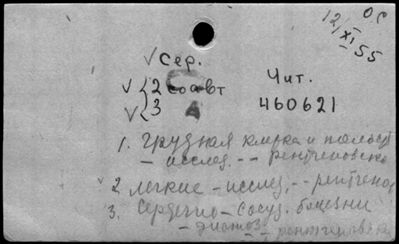 12/XI 55 ОС
√ Сер.
√ { 2 соавт
√ { 3 А
Чит.
460621
1. Грудная клетка и полость
– исслед. -- рентгеновское
√ 2. Легкие – исслед. -- рентгенов
3. Сердечно – сосуд. болезни
– диагноз -- рентгеновский